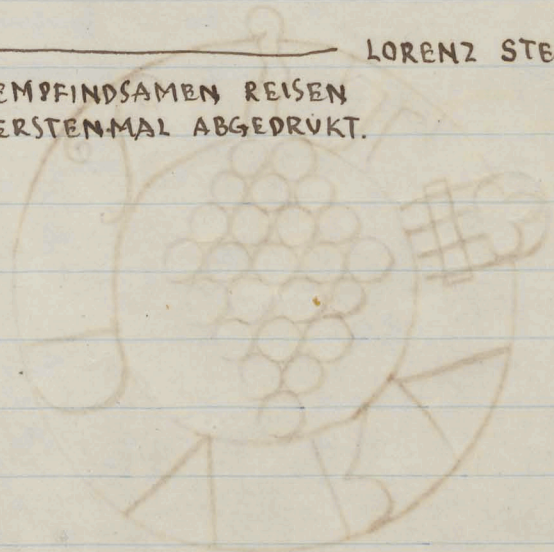 LORENZ STE
EMPFINDSAMEN REISEN
ERSTENMAL ABGEDRUKT.